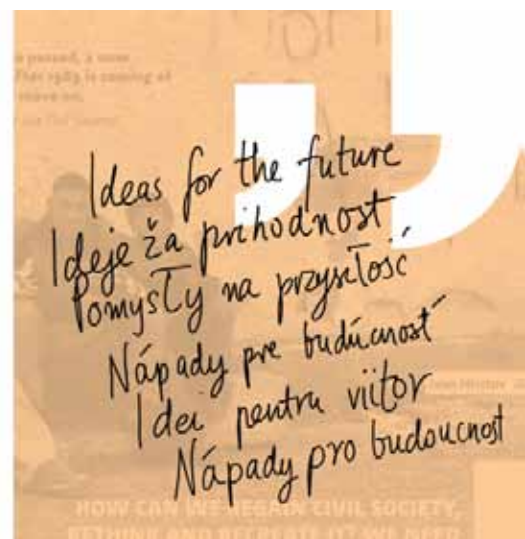 a passed, a new
after 1989 is coming of
move on.
Ideas for the future
Ideje ža prihodnost
Pomysły na przyszłość
Nápady pre budúcnosť
Idei pentru viitor
Nápady pro budoucnost
HOW CAN WE REGAIN CIVIL SOCIETY,
RETHINK AND RECREATE IT? WE NEED